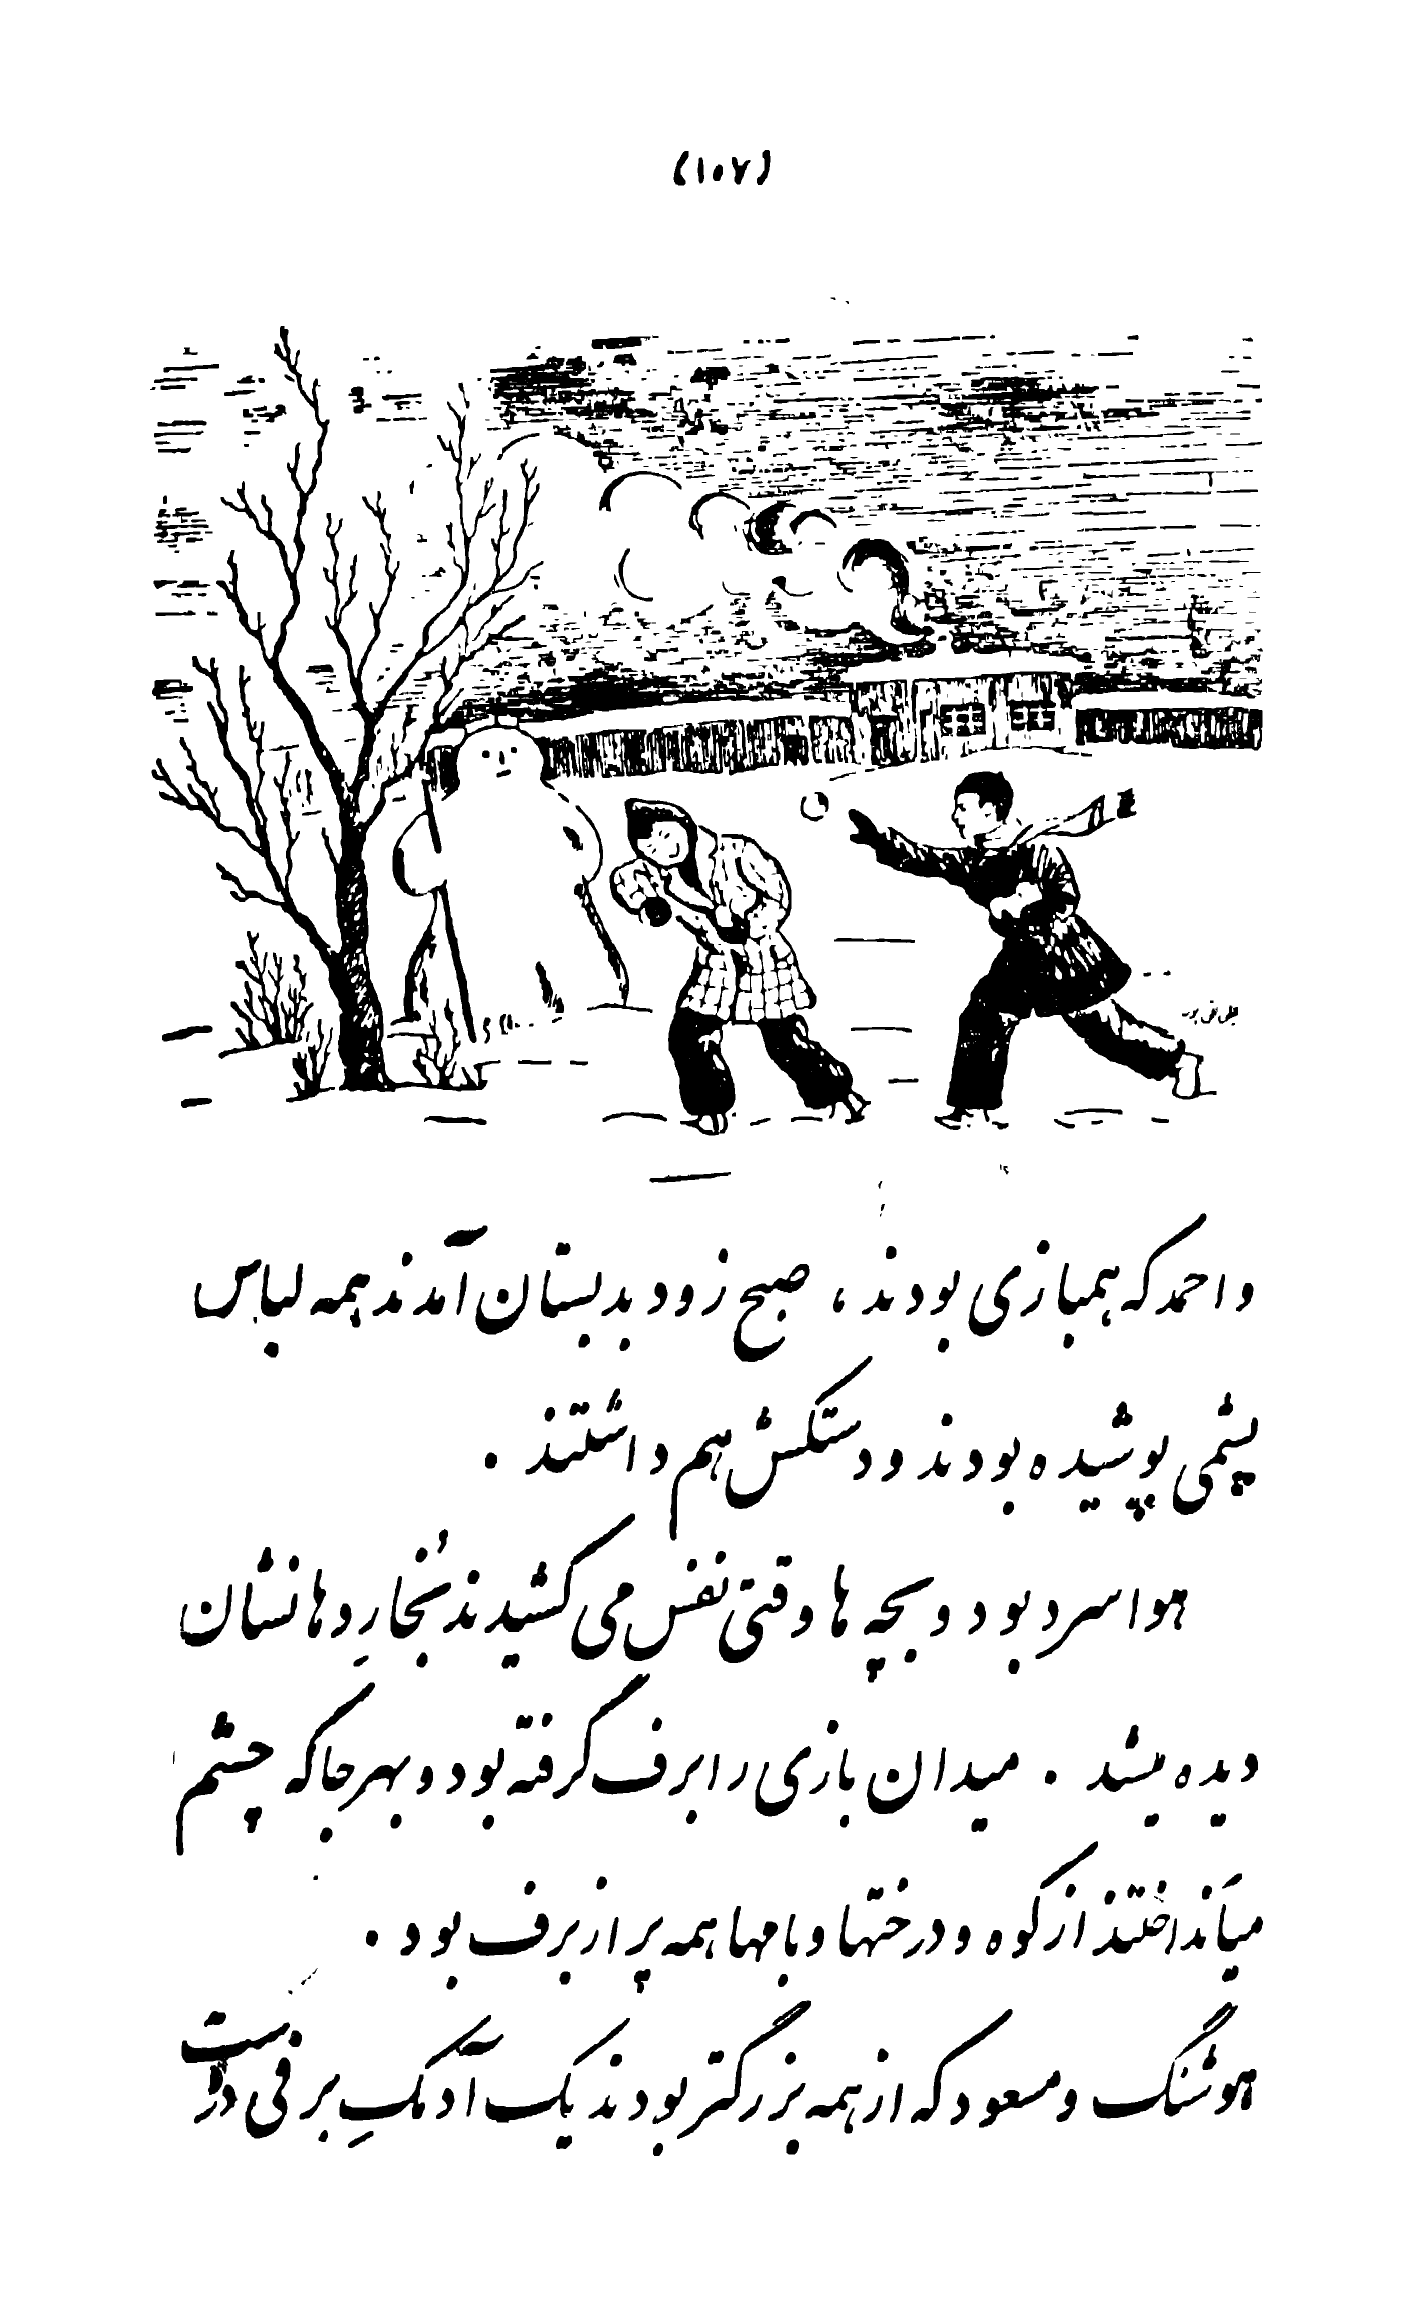 (۱۰۷)
و احمد که همبازی بودند، صبح زود بدبستان آمدند همه لباس
پشمی پوشیده بودند و دستکش هم داشتند .
هوا سرد بود و بچه ها وقتی نفس می کشیدند بُخارِ دهانشان
دیده میشد . میدان بازی را برف گرفته بود و بهر جا که چشم
میاَنداختند از کوه و درختها و بامها همه پر از برف بود .
هوشنگ و مسعود که از همه بزرگتر بودند یک آدمکِ برفی درست